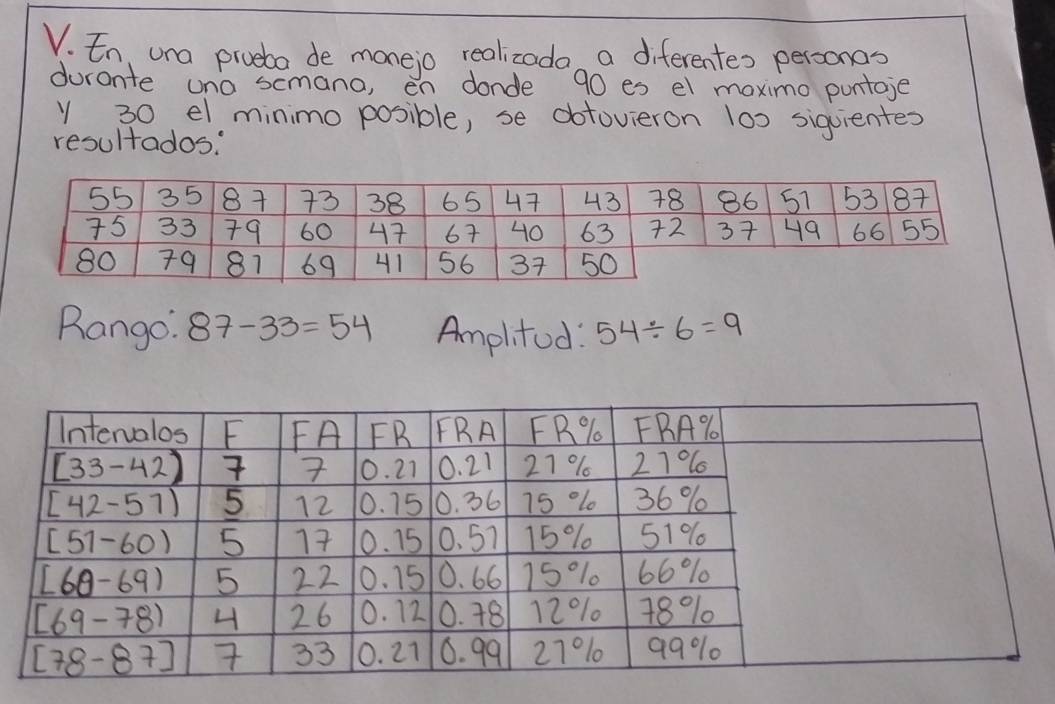 V. En una prueba de manejo realizada a diferentes personas
durante una semana, en donde 90 es el maximo puntaje
y 30 el minimo posible, se obtuvieron los siguientes
resultados:
55 35 87 73 38 65 47 43 78 86 51 53 87
75 33 79 60 47 67 40 63 72 37 49 66 55
80 79 81 69 41 56 37 50
Rango: 87-33=54 Amplitud: 54÷6=9
Intervalos F FA FR FRA FR% FRA%
[33-42) 7 7 0.21 0.21 21% 21%
[42-51) 5 12 0.15 0.36 15% 36%
[51-60) 5 17 0.15 0.51 15% 51%
[60-69) 5 22 0.15 0.66 15% 66%
[69-78) 4 26 0.12 0.78 12% 78%
[78-87] 7 33 0.21 0.99 21% 99%